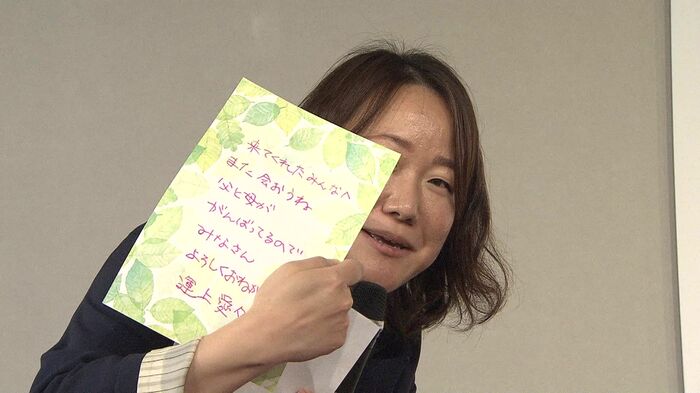 来てくれたみんなへ
またに会おうね
父と母が
がんばってるので
みなさん
よろしくおねが
運上愛